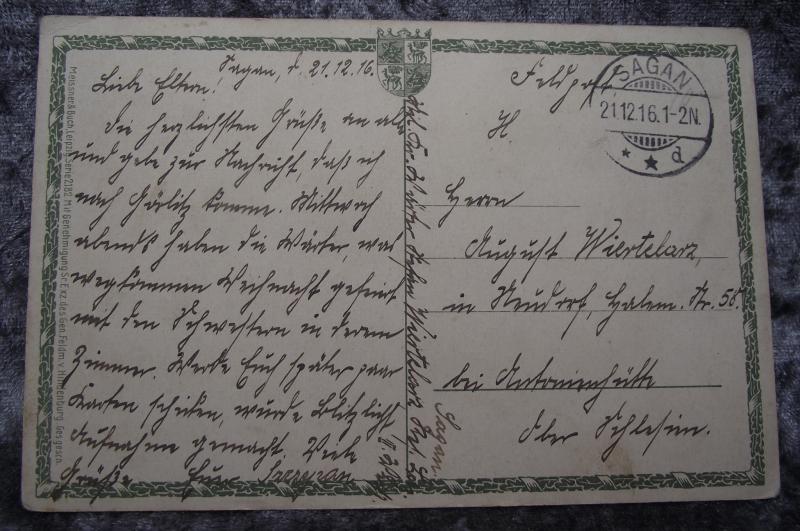 Sagan, d. 21.12.16.
Liebe Eltern!
Die herzlichsten Grüße an alle
und gebe zur Nachricht, daß ich
nach Görlitz komme. Mittwoch
abends haben die Wärter, was
wegkommen Weihnacht gefeiert
mit den Schwestern in derem
Zimmer. Werde Euch später paar
Karten schicken, wurde Blitzlicht
Aufnahme gemacht. Viele
Grüße Euer
Meissner & Buch, Leipzig Serie 2182 Mit Genehmigung Sr. Exz. des Gen. Feldm. v. Hindenburg. Ges. gesch.
Wiertelarz
Sagan
Feldpost
SAGAN
21.12.16.1-2N.
* * d
H
Herrn
August Wiertelarz,
in Neudorf, Halem. Str. 58.
bei Antonienhütte
Ober Schlesien.